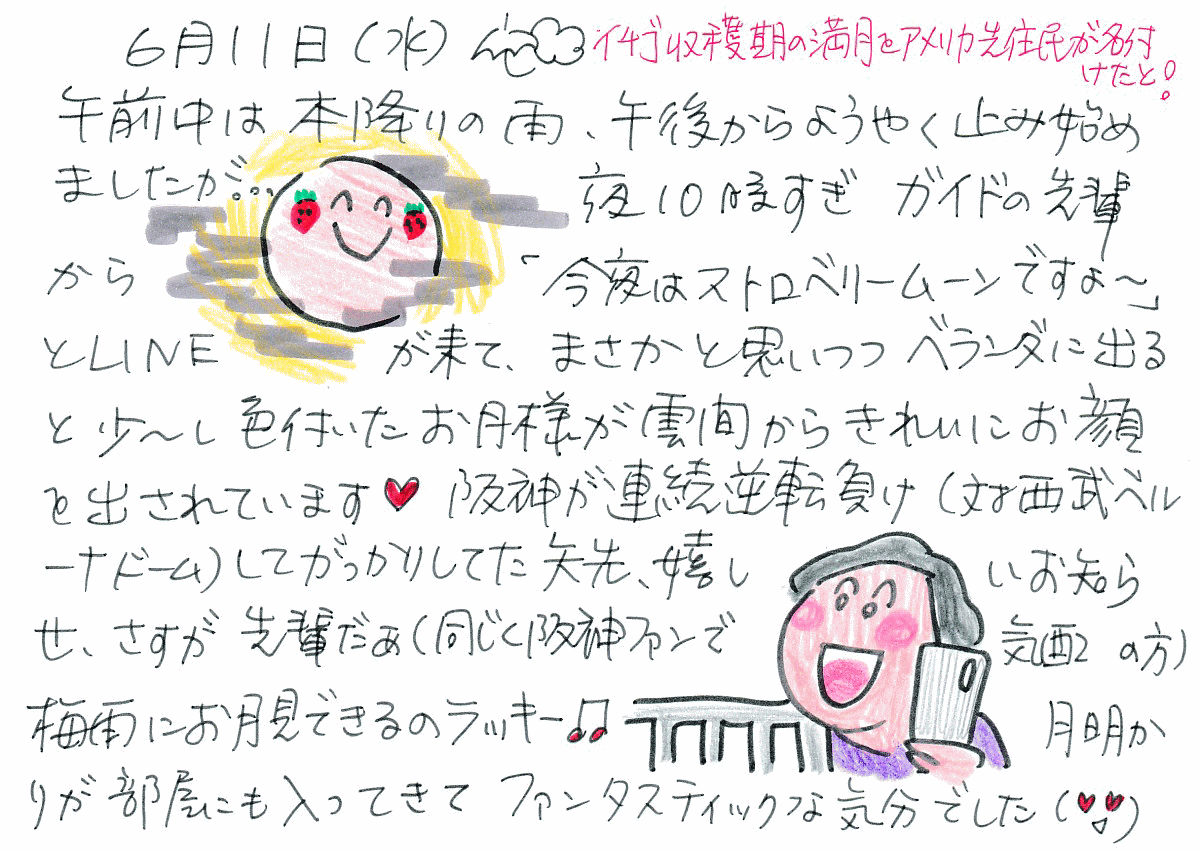 6月11日(水)
イチゴ収穫期の満月をアメリカ先住民が名付
けたと!
午前中は本降りの雨、午後からようやく止み始め
ましたが…
夜10時すぎ ガイドの先輩
から「今夜はストロベリームーンですよ〜」
とLINEが来て、まさかと思いつつベランダに出る
と少〜し色付いたお月様が雲間からきれいにお顔
を出されています♥ 阪神が連続逆転負け(対西武ベル
ーナドーム)してがっかりしてた矢先、嬉しいお知ら
せ、さすが先輩だぁ(同じく阪神ファンで気配の方)
梅雨にお月見できるのラッキー♫ 月明か
りが部屋にも入ってきてファンタスティックな気分でした(♥♥)